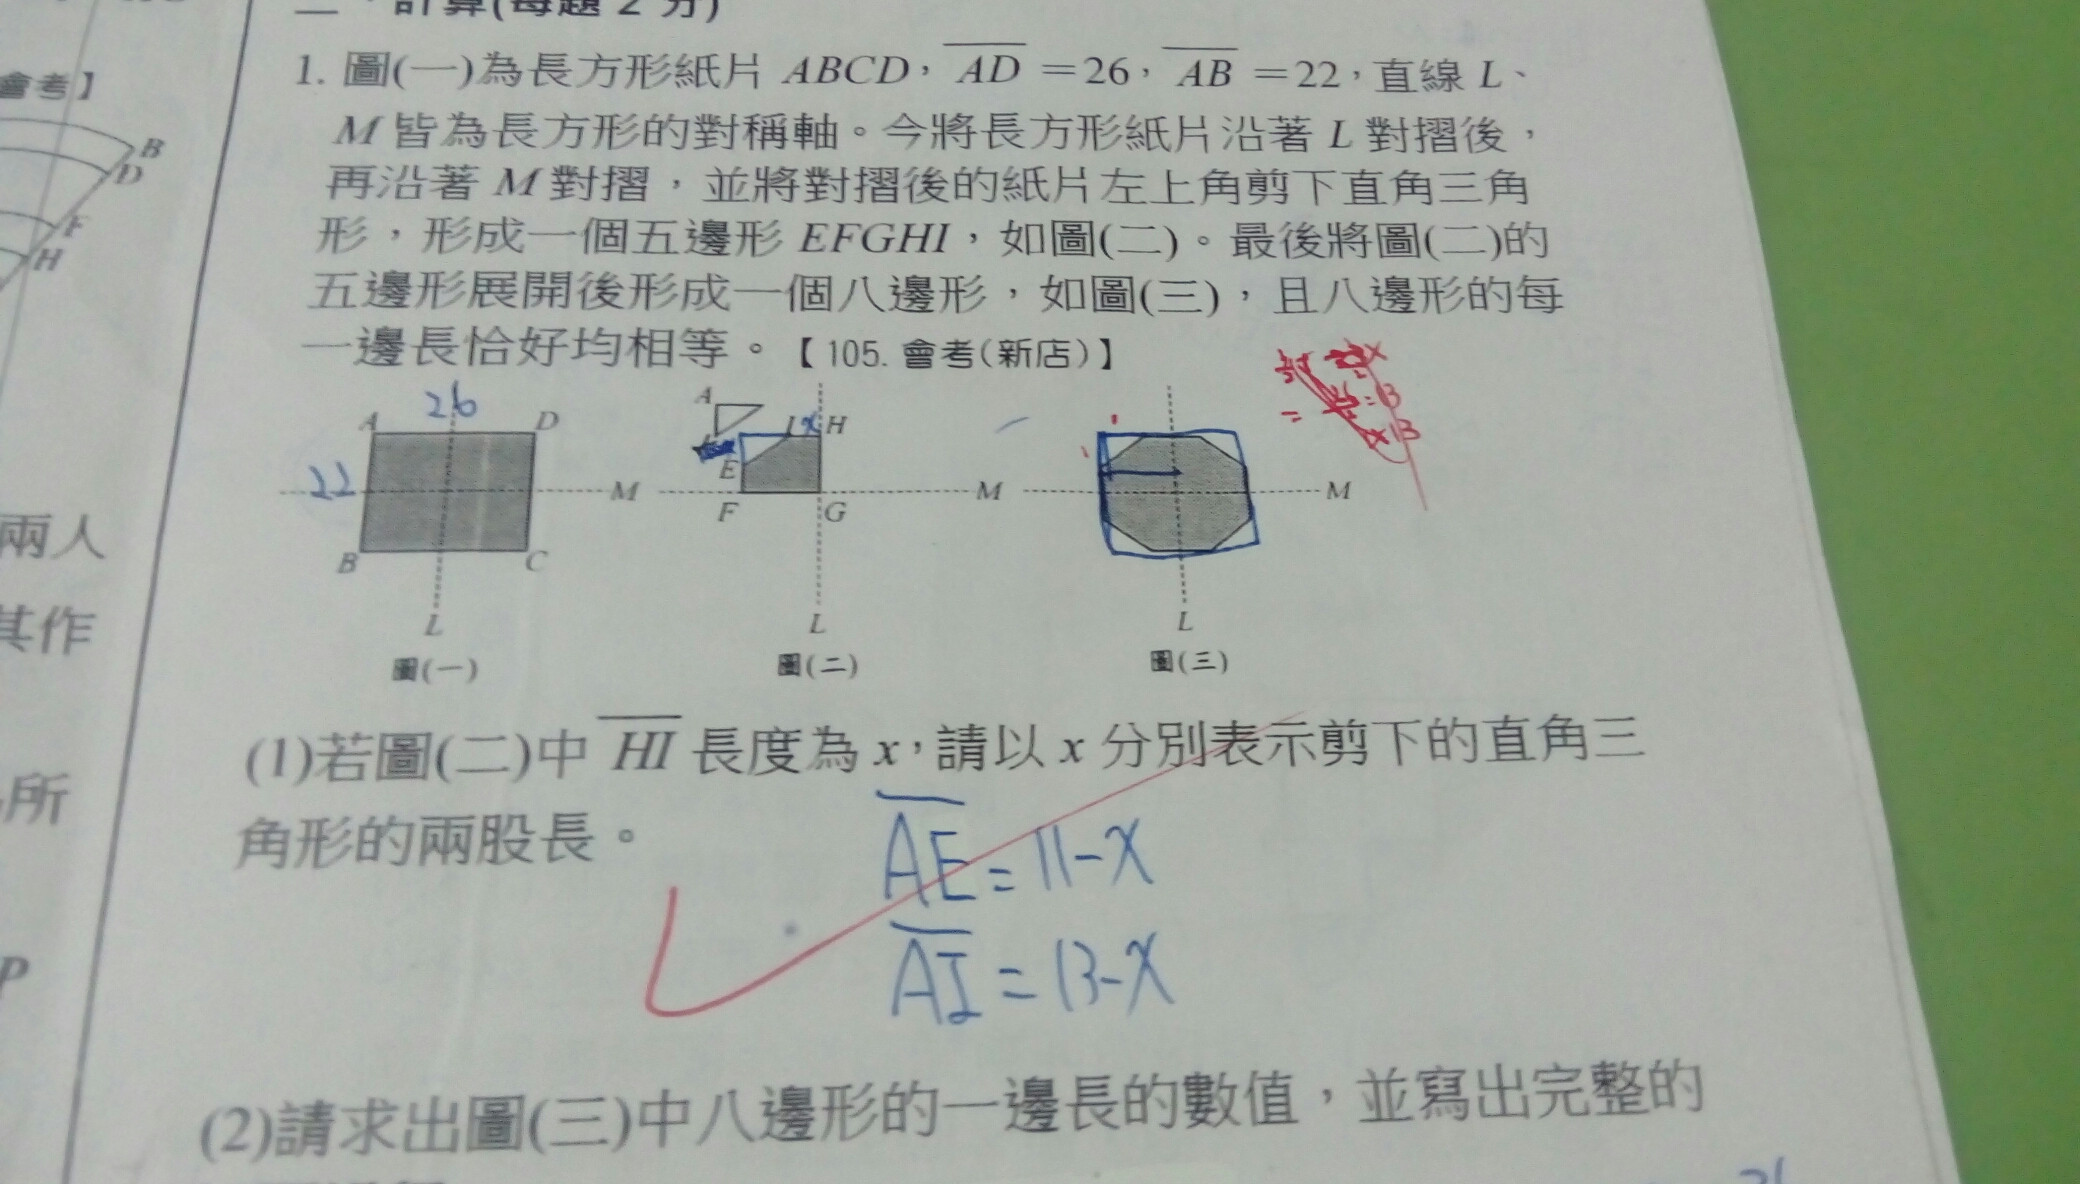 計算(每題2分)
1. 圖(一)為長方形紙片 ABCD，AD =26，AB =22，直線 L、
M 皆為長方形的對稱軸。今將長方形紙片沿著 L 對摺後，
再沿著 M 對摺，並將對摺後的紙片左上角剪下直角三角
形，形成一個五邊形 EFGHI，如圖(二)。最後將圖(二)的
五邊形展開後形成一個八邊形，如圖(三)，且八邊形的每
一邊長恰好均相等。【105. 會考(新店)】
會考】
B
D
F
H
兩人
其作
所
P
A 26 D
22 M
B C
L
圖(一)
A
I x H
E M
F G
L
圖(二)
M
L
圖(三)
(1)若圖(二)中 HI 長度為 x，請以 x 分別表示剪下的直角三
角形的兩股長。
AE = 11-x
AI = 13-x
(2)請求出圖(三)中八邊形的一邊長的數值，並寫出完整的